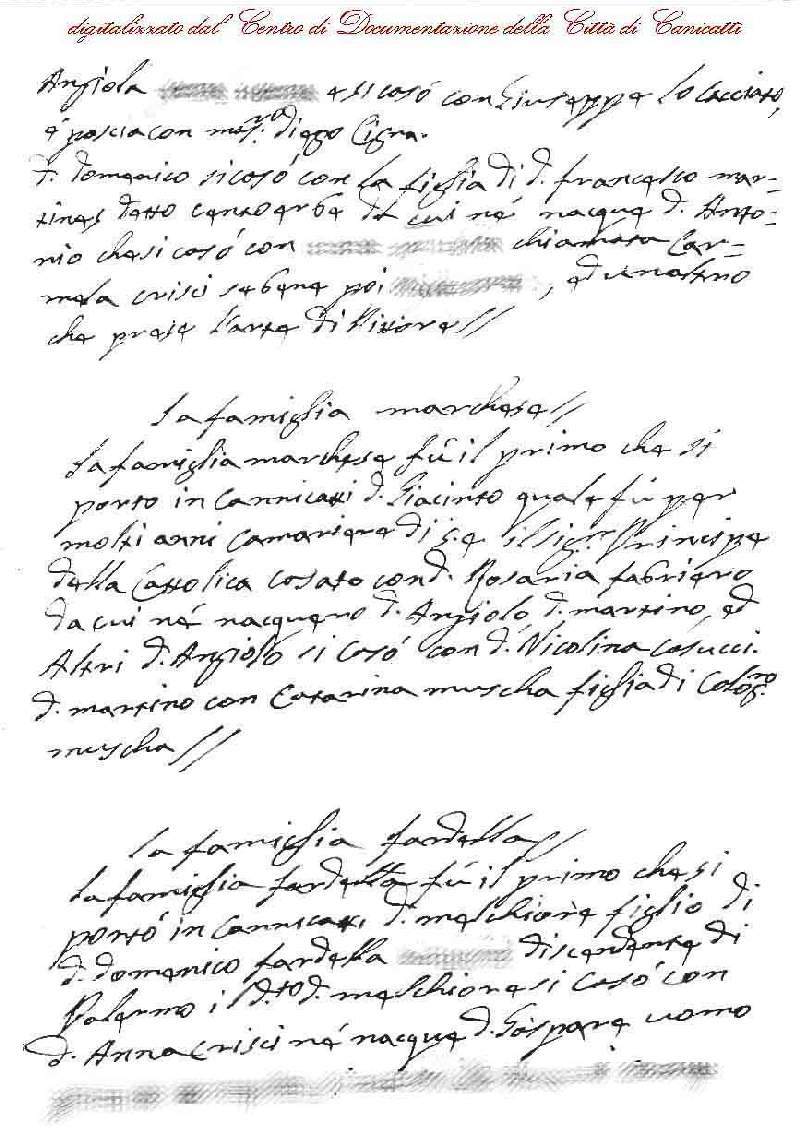 digitalizzato dal Centro di Documentazione della Città di Canicattì
Angiola e si casó con Giuseppe lo Cacciato,
é poscia con mas.ro diego Cigna.
D. domenico si casó con la figlia di d. francesco mar=
tines detto centoerbe da cui né nacque d. Anto=
nio che si casó con chiamata Car=
mela crisci sebene poi , ed un altro
che prese l'arte di Pittore//
La famiglia marchese//
La famiglia marchese fú il primo che si
porto in Cannicatti d. Giacinto quale fú per
molti anni Camariere di S.E. il sig.r Principe
della Cattolica casato con d. Rosaria fabriero
da cui né nacquero d. Angiolo, d. martino, ed
Altri d. Angiolo si casó con d. Nicolina Casucci.
d. martino con Catarina muscha figlia di Calog.no
muscha//
La famiglia fardella//
La famiglia fardella fú il primo che si
portó in Cannicatti d. melchiore figlio di
d. domenico fardella discendente di
Palermo il d.to d. melchiore si casó con
d. Anna Crisci né nacque d. Gaspare uomo